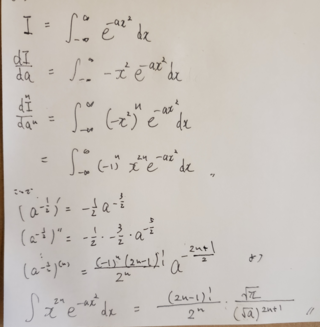 I = ∫_{-∞}^{∞} e^{-ax²} dx
dI/da = ∫_{-∞}^{∞} -x² e^{-ax²} dx
dⁿI/daⁿ = ∫_{-∞}^{∞} (-x²)ⁿ e^{-ax²} dx
= ∫_{-∞}^{∞} (-1)ⁿ x^{2n} e^{-ax²} dx 〃
ここで
(a^{-1/2})' = -1/2 a^{-3/2}
(a^{-1/2})'' = -1/2 · -3/2 · a^{-3/2}
(a^{-1/2})^{(n)} = (-1)ⁿ (2n-1)!! / 2ⁿ a^{-(2n+1)/2} より
∫ x^{2n} e^{-ax²} dx = (2n-1)!! / 2ⁿ · √π / (√a)^{2n+1} 〃